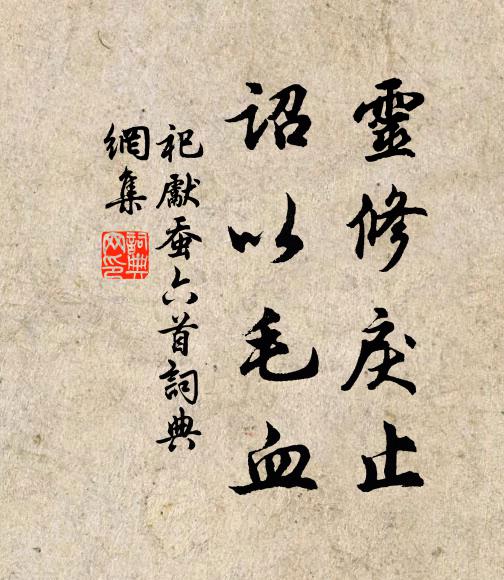 靈修戾止
詔以毛血
祀獻蚕六首詞典
網集
詞典網印